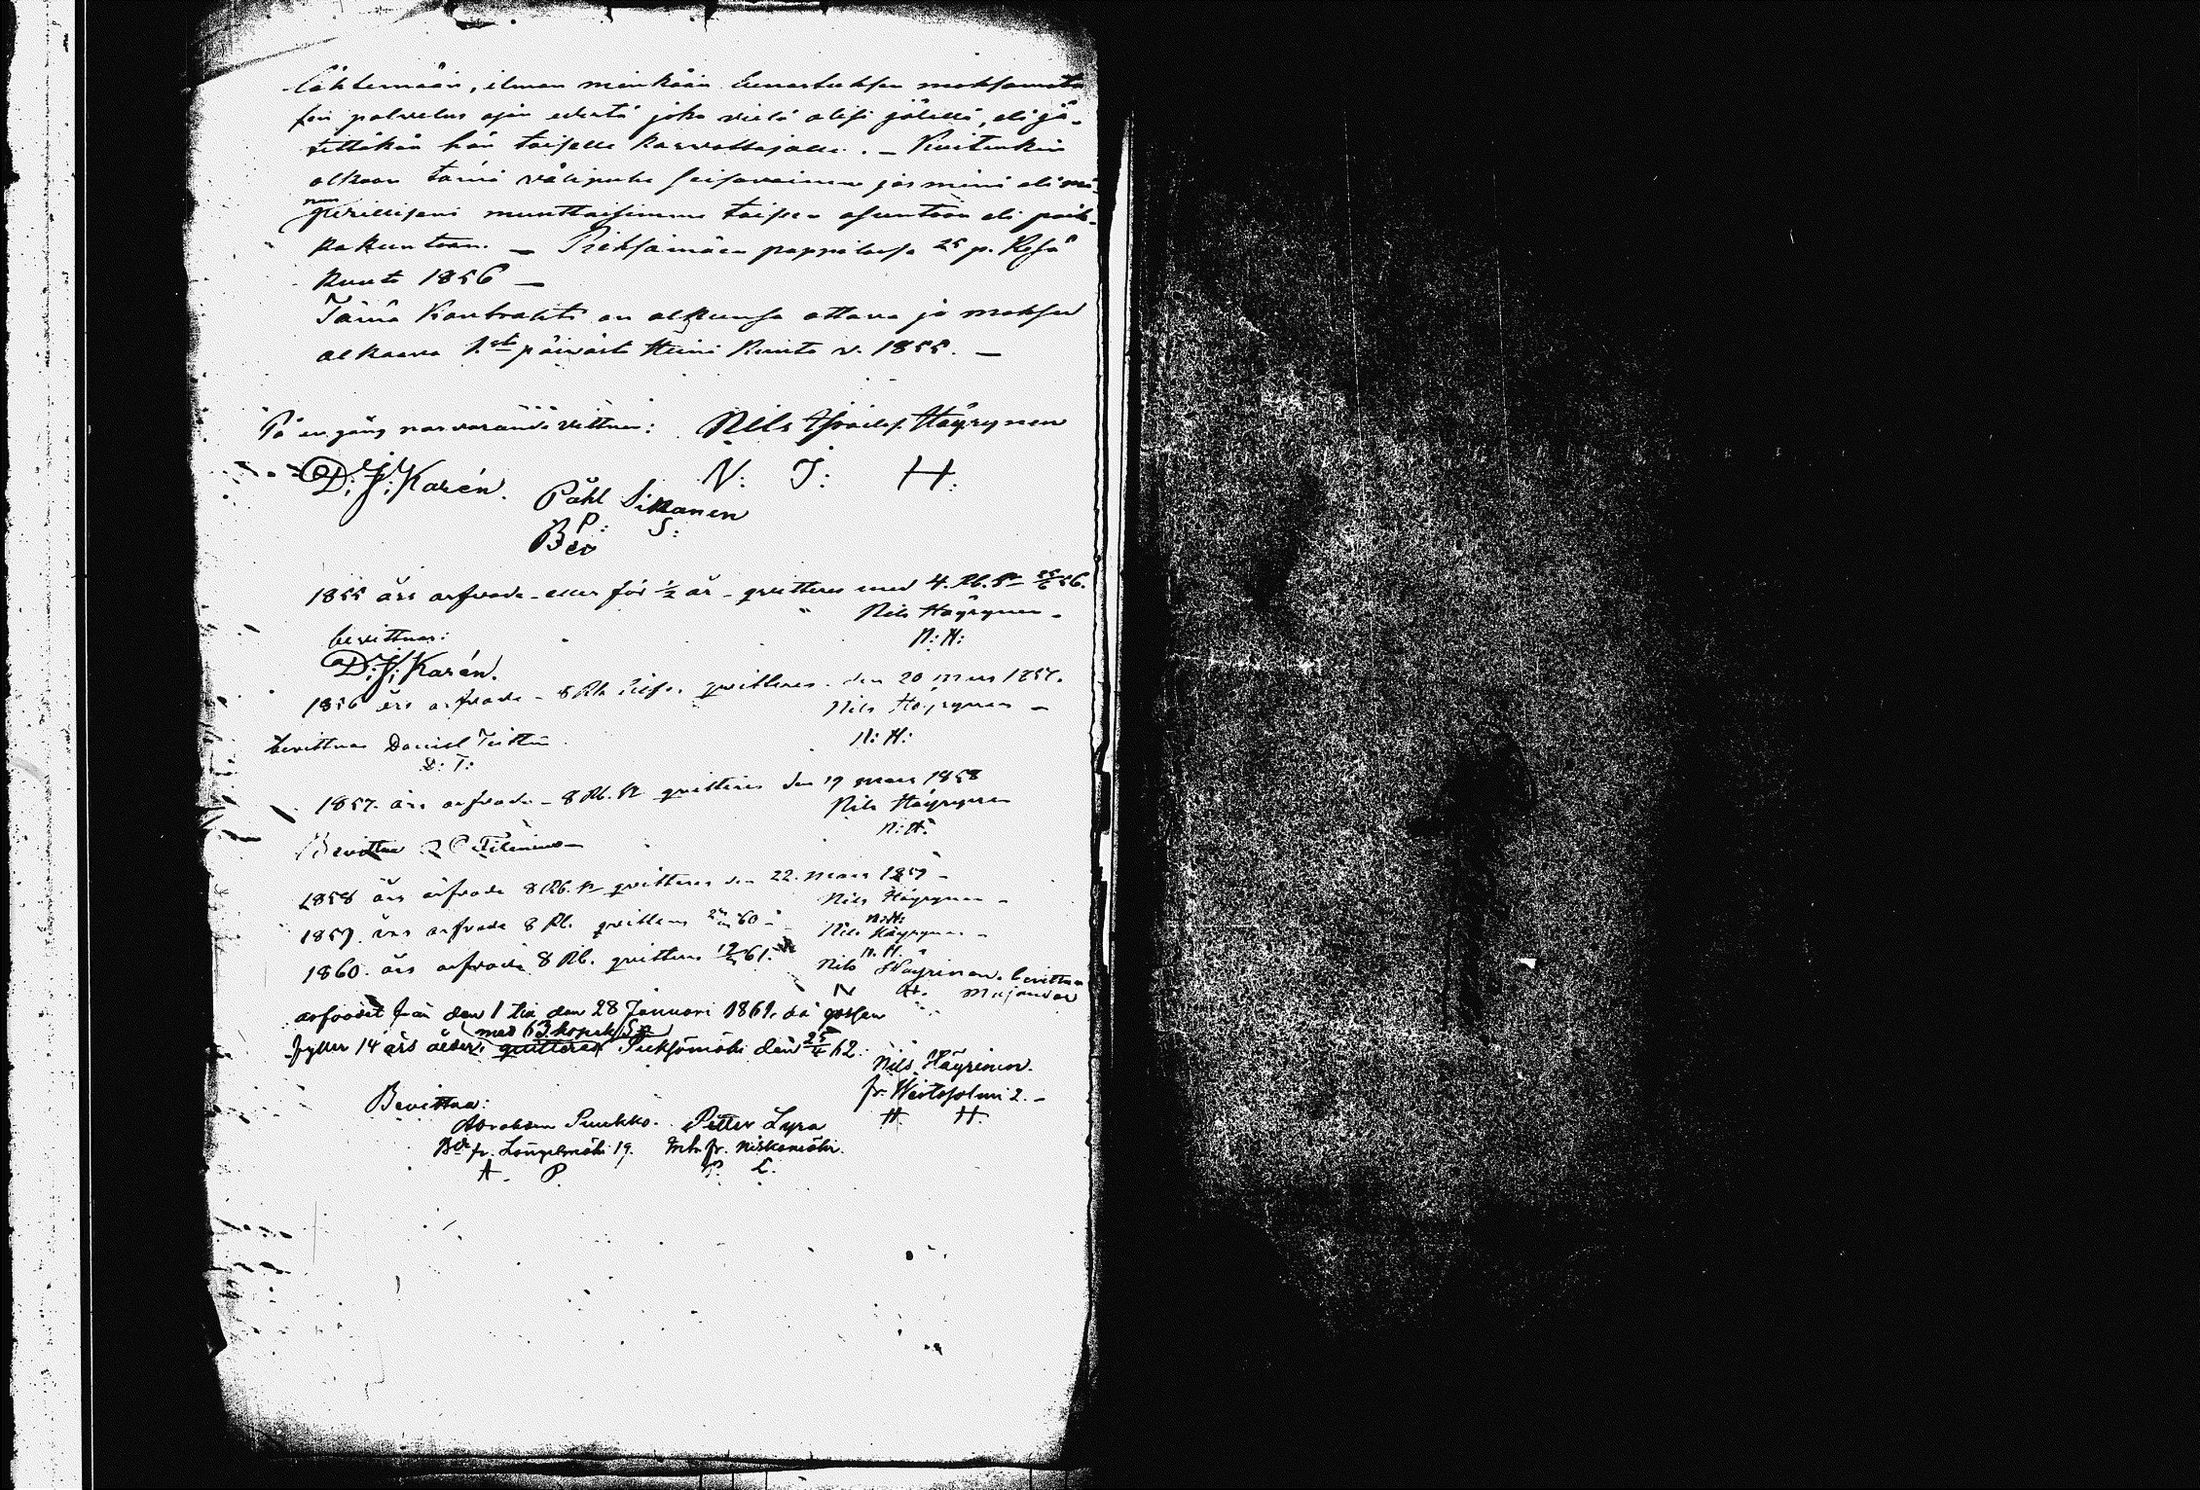 lähtemään, ilman minkään lunastuksen maksamata
sen palvelus ajan edestä joka vielä olisi jälellä, eli jä-
tettäköön hän toiselle kasvattajalle. — Kuitenkin
olkoon tämä välipuhe seisovainen jos minä eli
perilliseni muuttaisimme toiseen asuntoon eli paik-
kakuntaan. — Pieksämäen pappilassa 25 p. Kesä
kuuta 1856 —
Tämä Kontrahti on alkunsa ottava ja maksu
alkaava 1.stä päivästä Heinä Kuuta v. 1855. —
På en gång närvarande vittnen: Nils Israelss. Häyrynen
D. J. Karén. N: I: H:
Påhl Sikanen
P: S:
1855 års arfvode - eller för ½ år - qvitteras med 4. Rb. Sr 25/6 56.
Nils Häyrynen -
bevittnar: N: H:
D. J. Karén.
1856 års arfvode - 8 Rb Silfv. qvitteras den 20 mars 1857.
Nils Häyrynen —
bevittnar Daniel Teittin N: H:
D: T:
1857. års arfvode - 8 Rb. Sr qvitteras den 19 mars 1858
Nils Häyrynen
N: H:
Bevittnar
1858 års arfvode 8 Rb. Sr qvitteras den 22. mars 1859 -
Nils Häyrynen -
N: H:
1859. års arfvode 8 Rb. qvitteras 60 - Nils Häyrynen -
N. H.
1860. års arfvode 8 Rb. qvitteras 61. Nils Häyrinen. bevittnar
N H. Mujander
arfvodet från den 1 till den 28 Januari 1861, då gossen
med 63 kopek Sr
fyller 14 års ålder, qvitteras Pieksämäki den 25/4 62.
Nils Häyrinen.
fr. Wirtasalmi 2. -
Bevittna: H H.
Abraham Puukko. Petter Lyra
Bd fr. Längelmäki 19. fr. Niskamäki.
A. P. P. L.